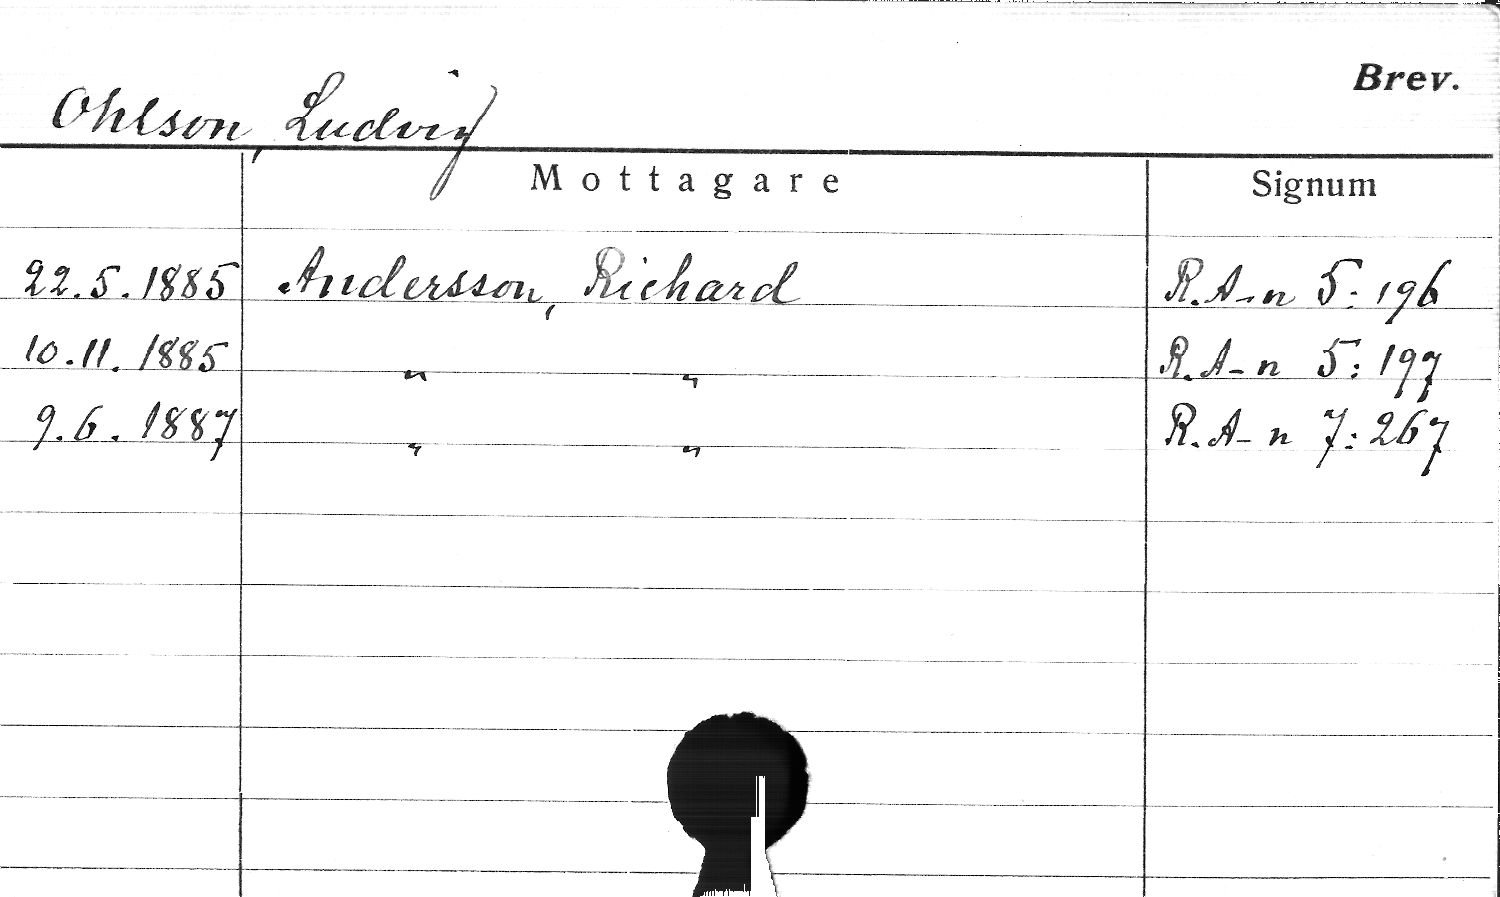 Brev.
Ohlson, Ludvig
Mottagare Signum
22.5.1885 Andersson, Richard R.A-n 5:196
10.11.1885 " " R.A-n 5:197
9.6.1887 " " R.A-n 7:267